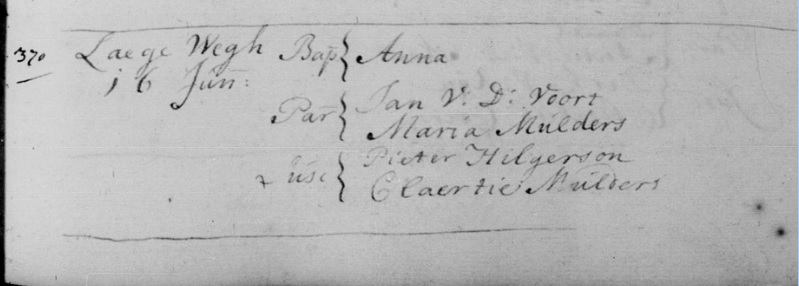 370 Laege Wegh Bap̄ { Anna
16 Jūn:
Par̄ { Jan V. D: Voort
Maria Mulders
Pieter Hilgerson
Claertie Mulders